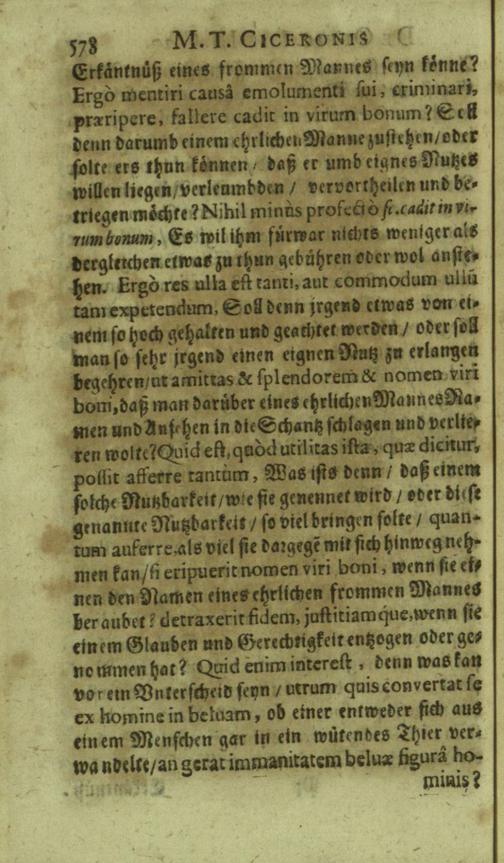 578 M. T. CICERONIS
Erkäntnüß eines frommen Mannes seyn könne?
Ergò mentiri causâ emolumenti sui, criminari,
præripere, fallere cadit in virum bonum? Soll
denn darumb einem ehrlichen Manne zustehen/oder
solte ers thun können/ daß er umb eignes Nutzes
willen liegen/verleumbden/ vervortheilen und be-
triegen möchte? Nihil minùs profectò sc. cadit in vi-
rum bonum, Es wil ihm fürwar nichts weniger als
dergleichen etwas zu thun gebühren oder wol anste-
hen. Ergò res ulla est tanti, aut commodum ullū
tam expetendum, Soll denn jrgend etwas von ei-
nem so hoch gehalten und geachtet werden/ oder soll
man so sehr jrgend einen eignen Nutz zu erlangen
begehren/ut amittas & splendorem & nomen viri
boni, daß man darüber eines ehrlichen Mannes Na-
men und Ansehen in die Schantz schlagen und verlie-
ren wolte? Quid est, quòd utilitas ista, quæ dicitur,
possit afferre tantùm, Was ists denn/ daß einem
solche Nutzbarkeit/wie sie genennet wird/ oder diese
genannte Nutzbarkeit/ so viel bringen solte/ quan-
tum auferre. als viel sie dargegē mit sich hinweg neh-
men kan/si eripuerit nomen viri boni, wenn sie ei-
nen den Namen eines ehrlichen frommen Mannes
beraubet? detraxerit fidem, justitiamque, wenn sie
einem Glauben und Gerechtigkeit entzogen oder ge-
nommen hat? Quid enim interest, denn was kan
vor ein Vnterscheid seyn/ utrum quis convertat se
ex homine in beluam, ob einer entweder sich aus
einem Menschen gar in ein wütendes Thier ver-
wandelte/an gerat immanitatem beluæ figurâ ho-
minis?